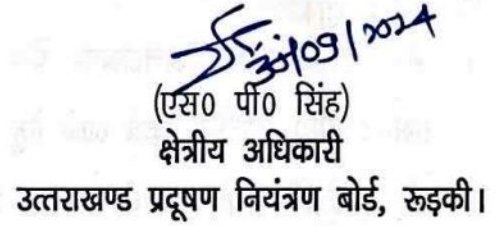 30/09/2024
(एस0 पी0 सिंह)
क्षेत्रीय अधिकारी
उत्तराखण्ड प्रदूषण नियंत्रण बोर्ड, रूड़की।